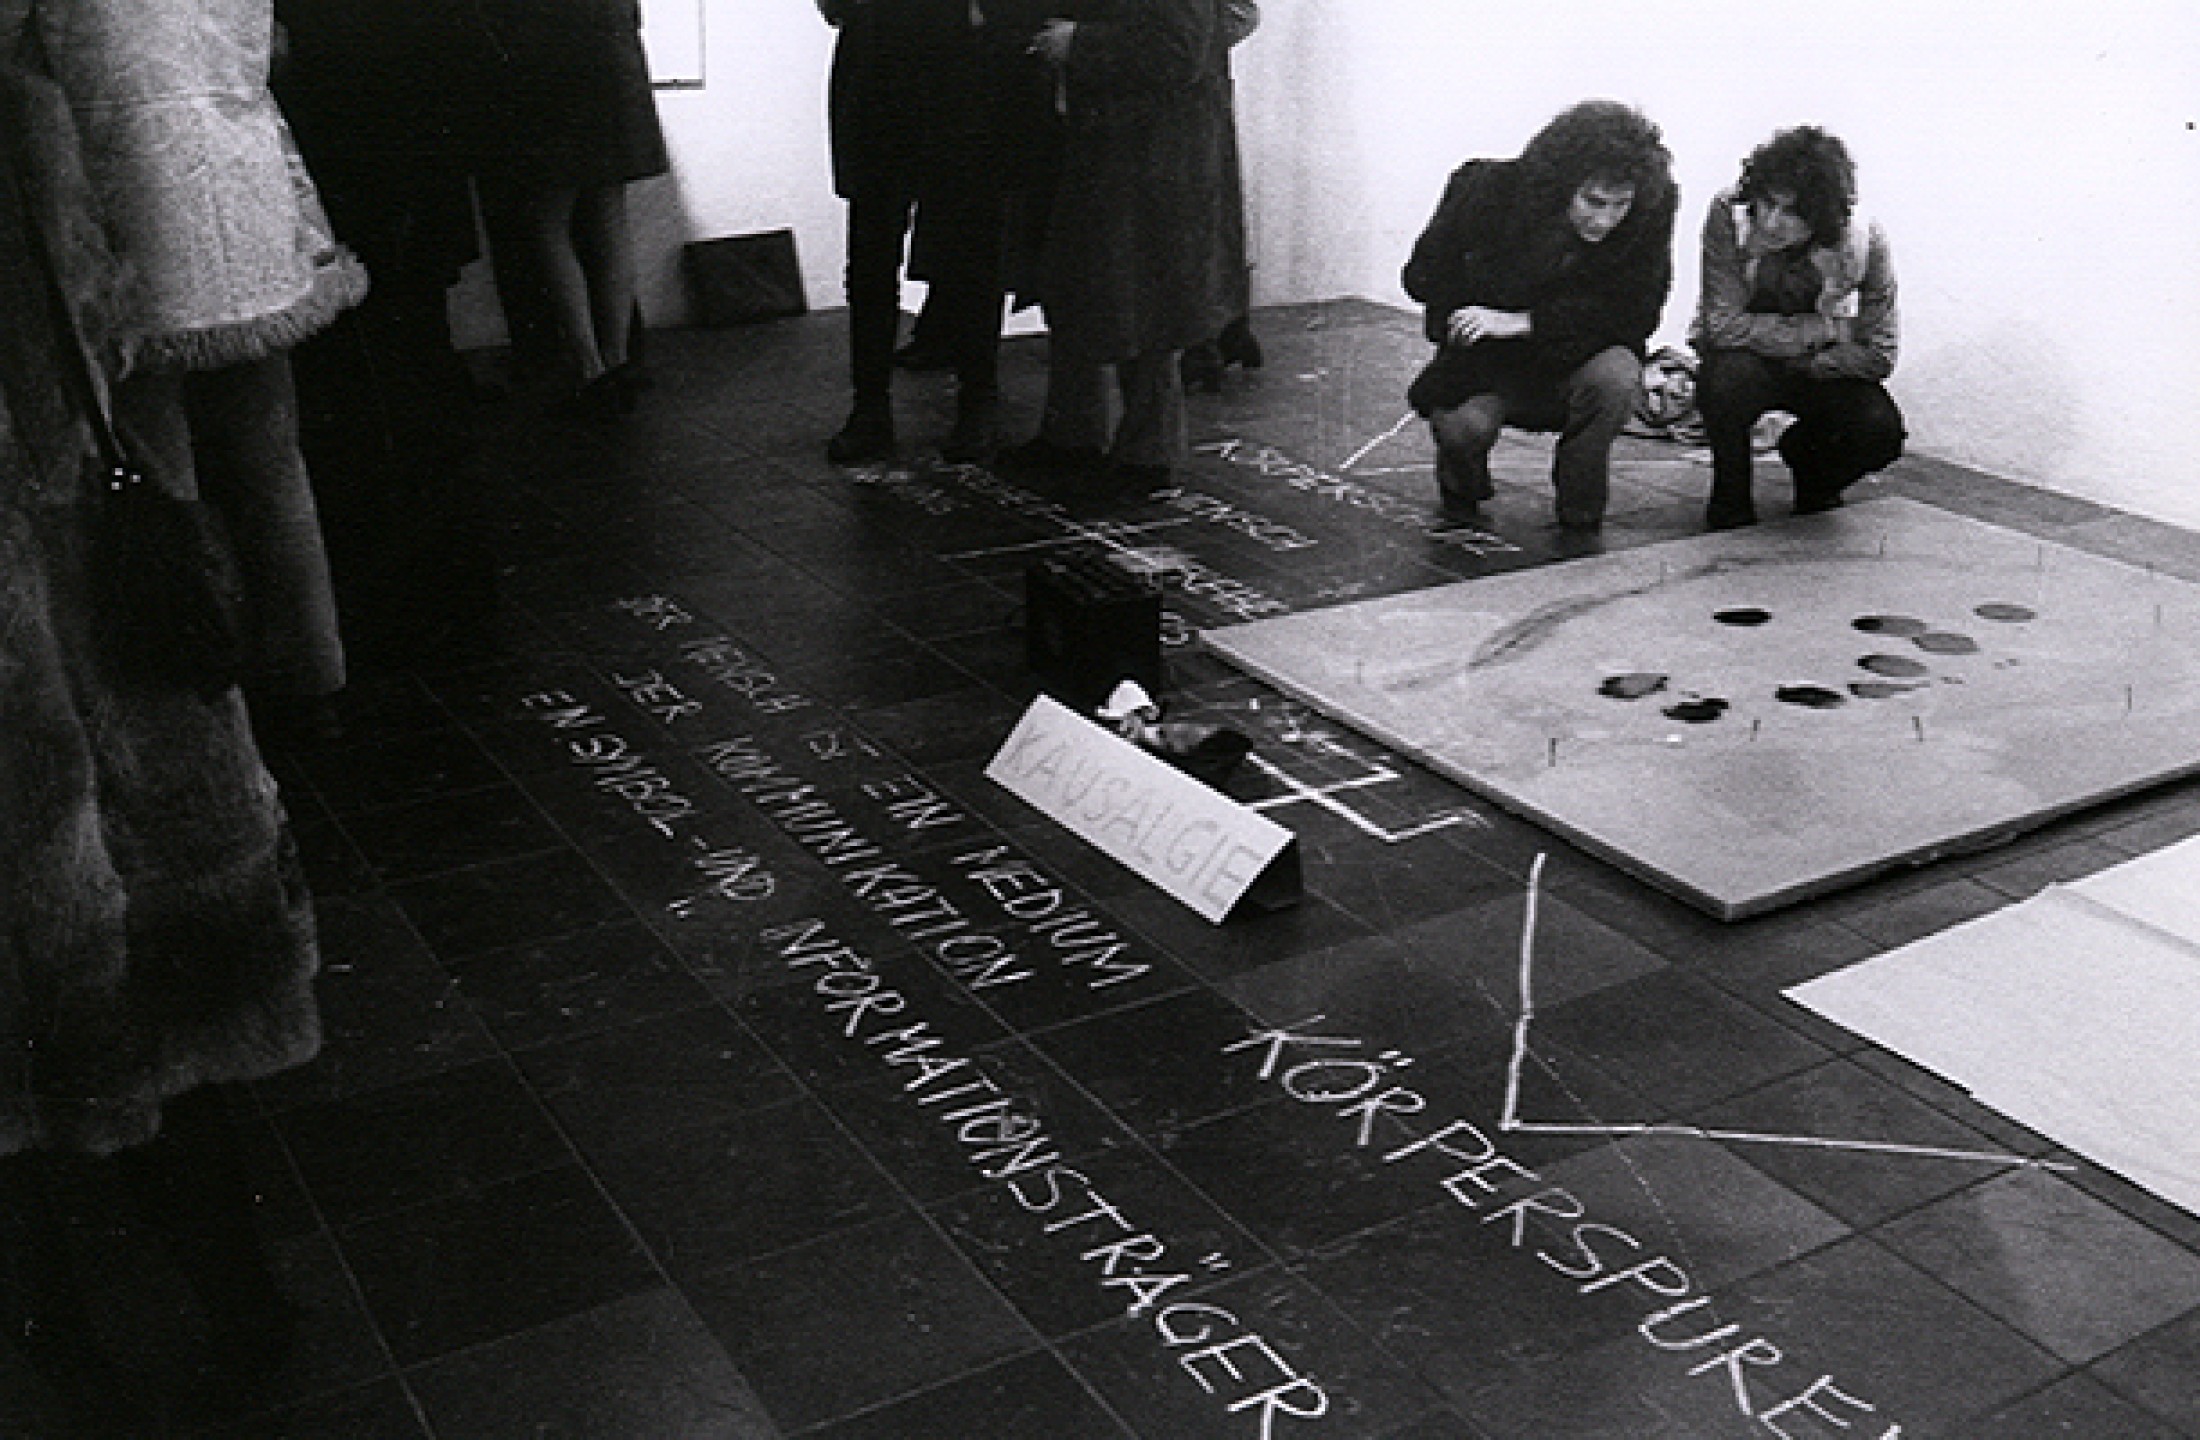 MENSCH
DER MENSCH IST EIN MEDIUM
DER KOMMUNIKATION
EIN SYMBOL-UND INFORMATIONSTRÄGER
KAUSALGIE
KÖRPERSPUREN